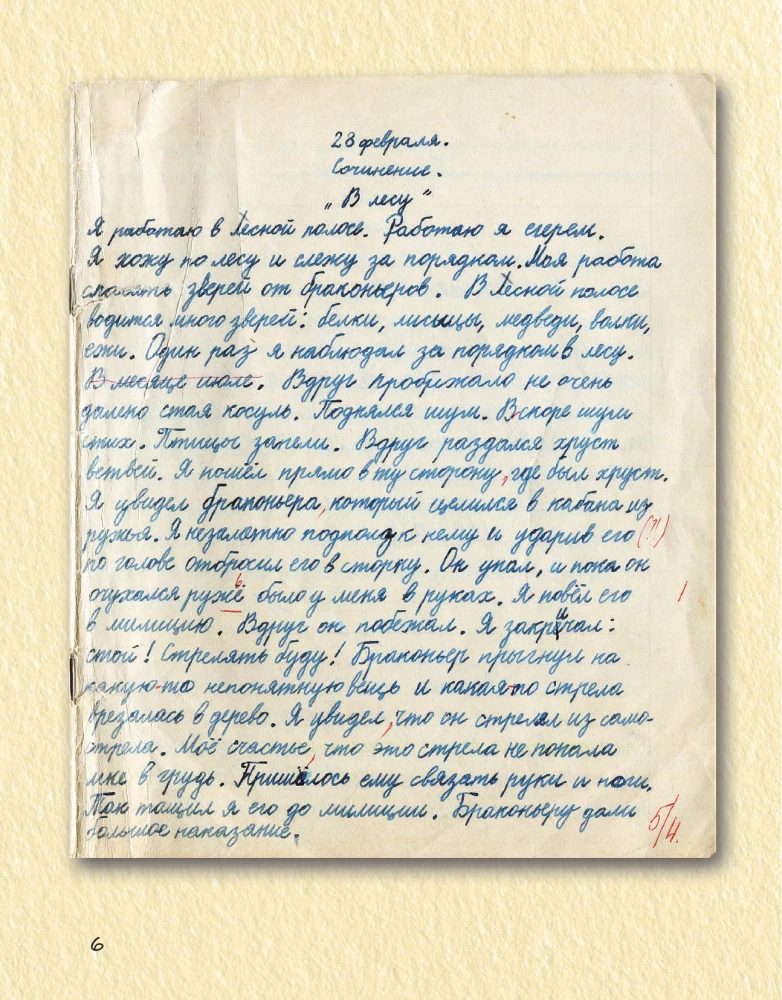 28 февраля.
Сочинение.
„В лесу“
Я работаю в лесной полосе. Работаю я егерем.
Я хожу по лесу и слежу за порядкам. Моя работа
спасать зверей от браконьеров. В лесной полосе
водится много зверей: белки, лисьицы, медведи, волки,
ежи. Один раз я наблюдал за порядком в лесу.
В месяце июле. Вдруг пробежало не очень
далеко стая косуль. Поднялся шум. Вскоре шум
стих. Птицы запели. Вдруг раздался хруст
ветвей. Я пошёл прямо в ту сторону, где был хруст.
Я увидел браконьера, который целился в кабана из
ружья. Я незаметно подполз к нему и ударив его (?!)
по голове отбросил его в сторку. Он упал, и пока он
очухался ружьё было у меня в руках. Я повёл его
1
в милицию. Вдруг он побежал. Я закричал:
стой! Стрелять буду! Браконьер прыгнул на
какую-то непонятную вещь и какая-то стрела
врезалась в дерево. Я увидел, что он стрелял из само-
стрела. Моё счастье, что это стрела не попала
мне в грудь. Пришлось ему связать руки и ноги.
Так тащил я его до милиции. Браконьеру дали
большое наказание.
5/4.
6